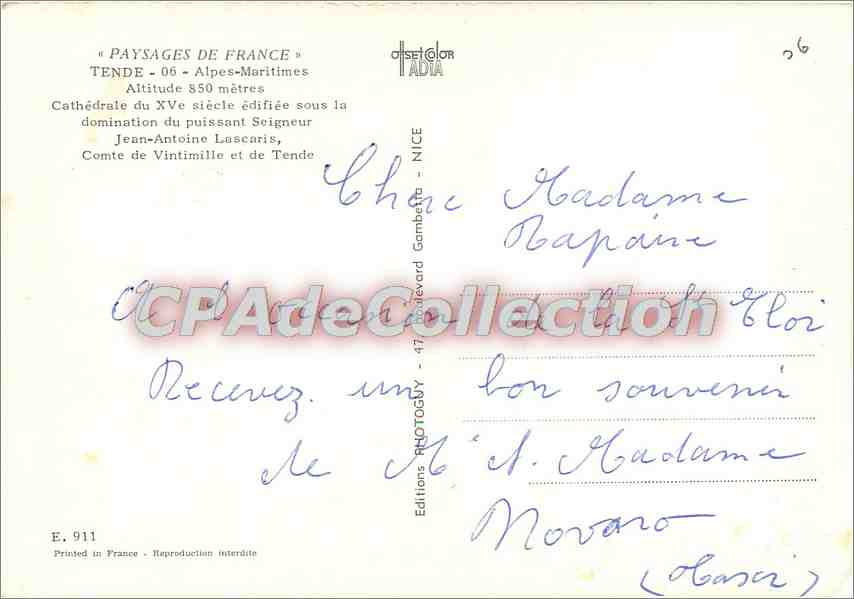 « PAYSAGES DE FRANCE »
TENDE - 06 - Alpes-Maritimes
Altitude 850 mètres
Cathédrale du XVe siècle édifiée sous la
domination du puissant Seigneur
Jean-Antoine Lascaris,
Comte de Vintimille et de Tende
OFFSETCOLOR
TADIA
06
Editions PHOTOGUY - 47, Boulevard Gambetta - NICE
Chère Madame
Rapaire
A l'occasion de la St Eloi
Recevez un bon souvenir
de Mr &. Madame
Novaro
CPAdeCollection
E. 911
Printed in France - Reproduction interdite